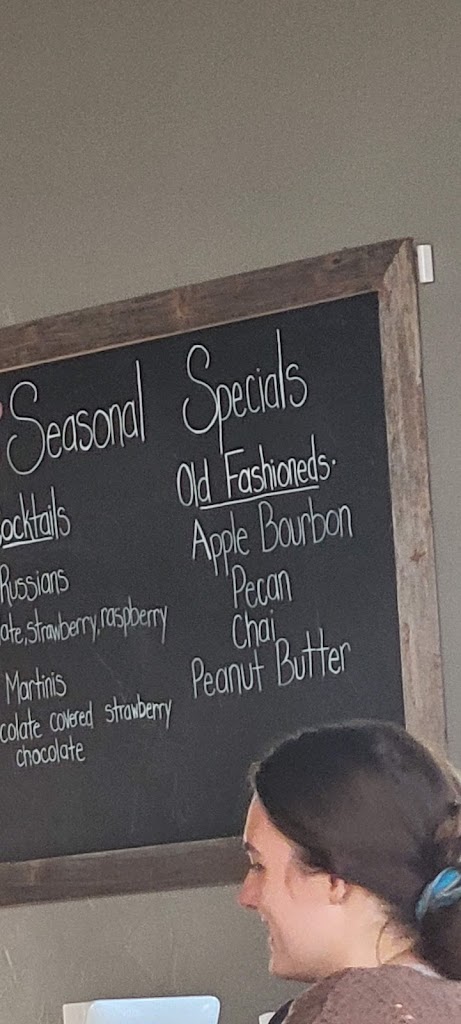 Seasonal Specials
ocktails
Russians
ate, strawberry, raspberry
Martinis
colate covered strawberry
chocolate
Old Fashioneds.
Apple Bourbon
Pecan
Chai
Peanut Butter